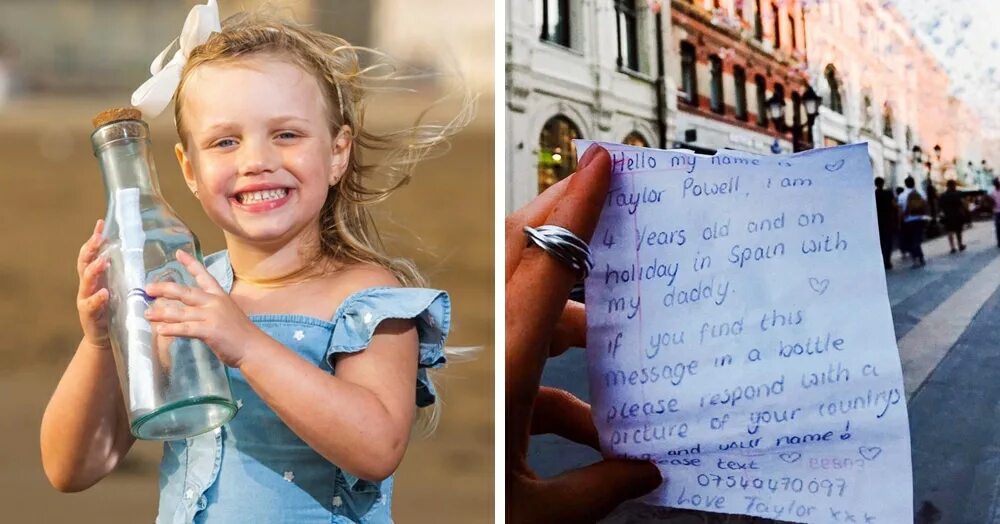 Hello my name is
Taylor Powell, i am
4 years old and on
holiday in Spain with
my daddy.
if you find this
message in a bottle
please respond with a
picture of your countrys
and your name!
please text
07540470097
Love Taylor xxx